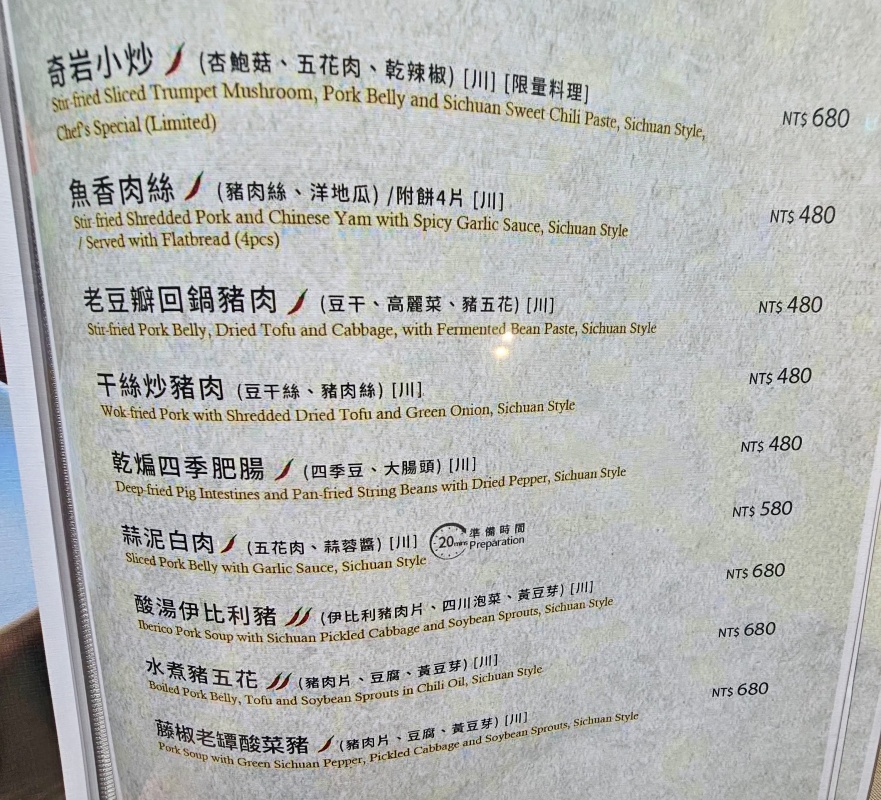 奇岩小炒 (杏鮑菇、五花肉、乾辣椒) [川] [限量料理]
Stir-fried Sliced Trumpet Mushroom, Pork Belly and Sichuan Sweet Chili Paste, Sichuan Style,
Chef's Special (Limited)
NT$ 680
魚香肉絲 (豬肉絲、洋地瓜) /附餅4片 [川]
Stir-fried Shredded Pork and Chinese Yam with Spicy Garlic Sauce, Sichuan Style
/ Served with Flatbread (4pcs)
NT$ 480
老豆瓣回鍋豬肉 (豆干、高麗菜、豬五花) [川]
Stir-fried Pork Belly, Dried Tofu and Cabbage, with Fermented Bean Paste, Sichuan Style
NT$ 480
干絲炒豬肉 (豆干絲、豬肉絲) [川]
Wok-fried Pork with Shredded Dried Tofu and Green Onion, Sichuan Style
NT$ 480
乾煸四季肥腸 (四季豆、大腸頭) [川]
Deep-fried Pig Intestines and Pan-fried String Beans with Dried Pepper, Sichuan Style
NT$ 480
蒜泥白肉 (五花肉、蒜蓉醬) [川] 20mins 準備時間 Preparation
Sliced Pork Belly with Garlic Sauce, Sichuan Style
NT$ 580
酸湯伊比利豬 (伊比利豬肉片、四川泡菜、黃豆芽) [川]
Iberico Pork Soup with Sichuan Pickled Cabbage and Soybean Sprouts, Sichuan Style
NT$ 680
水煮豬五花 (豬肉片、豆腐、黃豆芽) [川]
Boiled Pork Belly, Tofu and Soybean Sprouts in Chili Oil, Sichuan Style
NT$ 680
藤椒老罈酸菜豬 (豬肉片、豆腐、黃豆芽) [川]
Pork Soup with Green Sichuan Pepper, Pickled Cabbage and Soybean Sprouts, Sichuan Style
NT$ 680